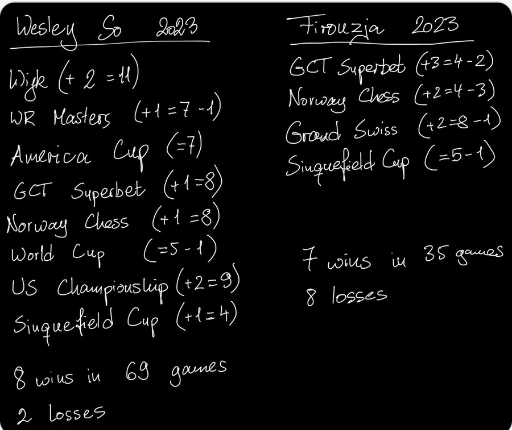 Wesley So 2023
Wijk (+2=11)
WR Masters (+1=7-1)
America Cup (=7)
GCT Superbet (+1=8)
Norway Chess (+1=8)
World Cup (=5-1)
US Championship (+2=9)
Sinquefield Cup (+1=4)
8 wins in 69 games
2 losses
Firouzja 2023
GCT Superbet (+3=4-2)
Norway Chess (+2=4-3)
Grand Swiss (+2=8-1)
Sinquefield Cup (=5-1)
7 wins in 35 games
8 losses